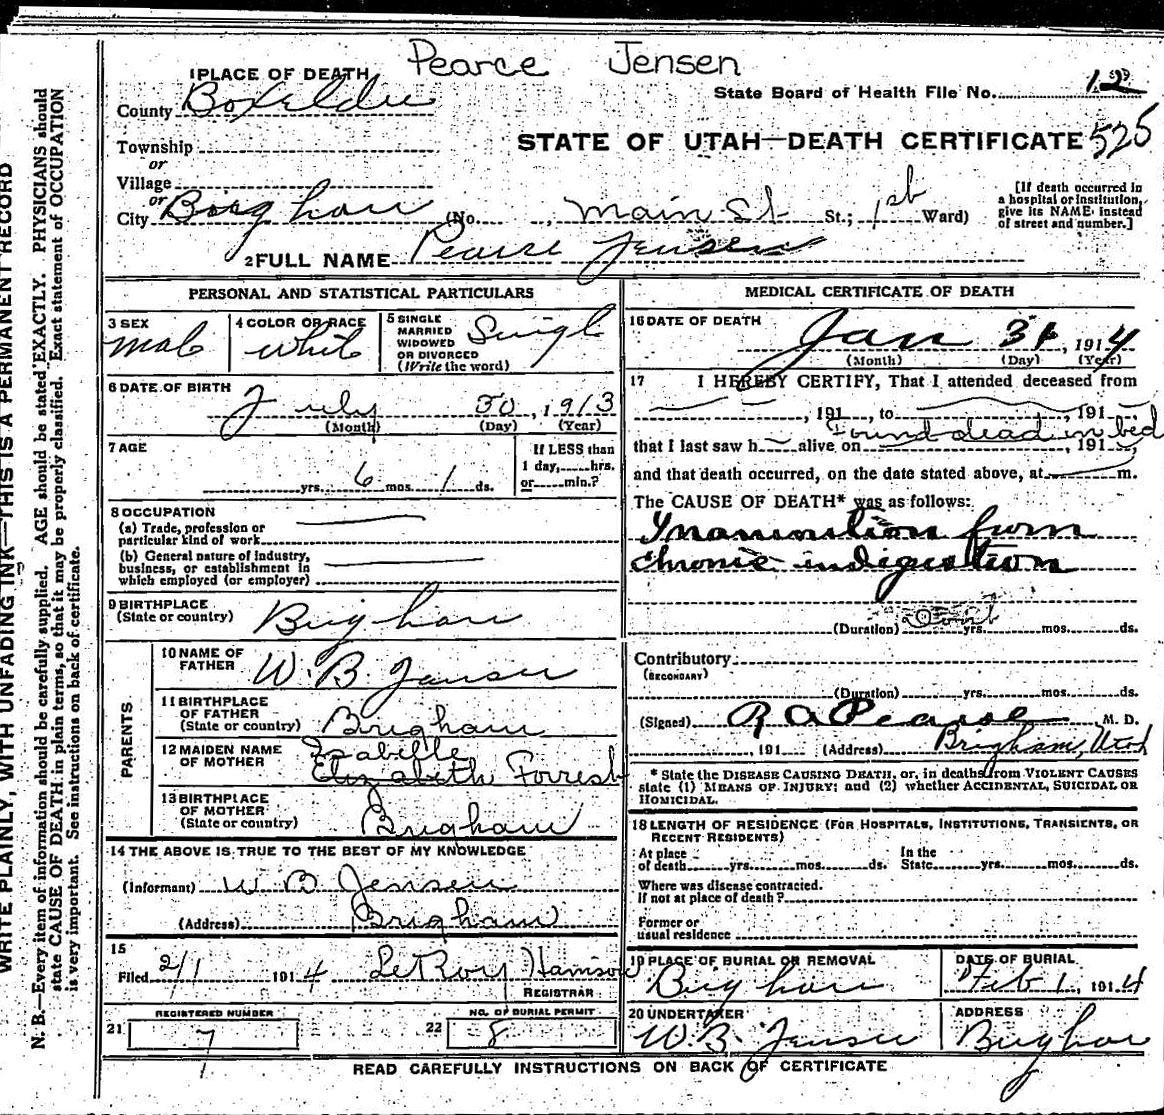 Pearce Jensen
1 PLACE OF DEATH
State Board of Health File No. 12
County Boxelder
STATE OF UTAH—DEATH CERTIFICATE 525
Township
or
Village
or
City Brigham (No. , Main St. St.; 1st Ward)
[If death occurred in
a hospital or institution,
give its NAME instead
of street and number.]
2 FULL NAME Pearse Jensen
PERSONAL AND STATISTICAL PARTICULARS
3 SEX
Male
4 COLOR OR RACE
White
5 SINGLE
MARRIED
WIDOWED
OR DIVORCED
(Write the word)
Single
6 DATE OF BIRTH
July 30, 1913
(Month) (Day) (Year)
7 AGE
yrs. 6 mos. 1 ds.
If LESS than
1 day, hrs.
or min.?
8 OCCUPATION
(a) Trade, profession or
particular kind of work
(b) General nature of industry,
business, or establishment in
which employed (or employer)
9 BIRTHPLACE
(State or country) Brigham
PARENTS
10 NAME OF
FATHER W. B. Jensen
11 BIRTHPLACE
OF FATHER
(State or country) Brigham
12 MAIDEN NAME
OF MOTHER
Isabelle
Elizabeth Forrest
13 BIRTHPLACE
OF MOTHER
(State or country) Brigham
14 THE ABOVE IS TRUE TO THE BEST OF MY KNOWLEDGE
(Informant) W B Jensen
(Address) Brigham
15
Filed 2/1 1914 LeRoy Harrison
REGISTRAR
21 REGISTERED NUMBER
7
22 NO. OF BURIAL PERMIT
8
MEDICAL CERTIFICATE OF DEATH
16 DATE OF DEATH
Jan 31, 1914
(Month) (Day) (Year)
17 I HEREBY CERTIFY, That I attended deceased from
, 191 , to , 191
Found dead in bed
that I last saw h alive on , 191 ,
and that death occurred, on the date stated above, at m.
The CAUSE OF DEATH* was as follows:
Inanination from
chronic indigestion
(Duration) yrs. mos. ds.
Contributory
(SECONDARY)
(Duration) yrs. mos. ds.
(Signed) R A Pearse M. D.
, 191 (Address) Brigham, Utah
* State the DISEASE CAUSING DEATH, or, in deaths from VIOLENT CAUSES
state (1) MEANS OF INJURY; and (2) whether ACCIDENTAL, SUICIDAL OR
HOMICIDAL.
18 LENGTH OF RESIDENCE (FOR HOSPITALS, INSTITUTIONS, TRANSIENTS, OR
RECENT RESIDENTS)
At place
of death yrs. mos. ds. In the
State yrs. mos. ds.
Where was disease contracted.
If not at place of death?
Former or
usual residence
19 PLACE OF BURIAL OR REMOVAL
Brigham
DATE OF BURIAL
Feb 1, 1914
20 UNDERTAKER
W. B. Jensen
ADDRESS
Brigham
READ CAREFULLY INSTRUCTIONS ON BACK OF CERTIFICATE
WRITE PLAINLY, WITH UNFADING INK—THIS IS A PERMANENT RECORD
N. B.—Every item of information should be carefully supplied. AGE should be stated EXACTLY. PHYSICIANS should
state CAUSE OF DEATH in plain terms, so that it may be properly classified. Exact statement of OCCUPATION
is very important. See instructions on back of certificate.